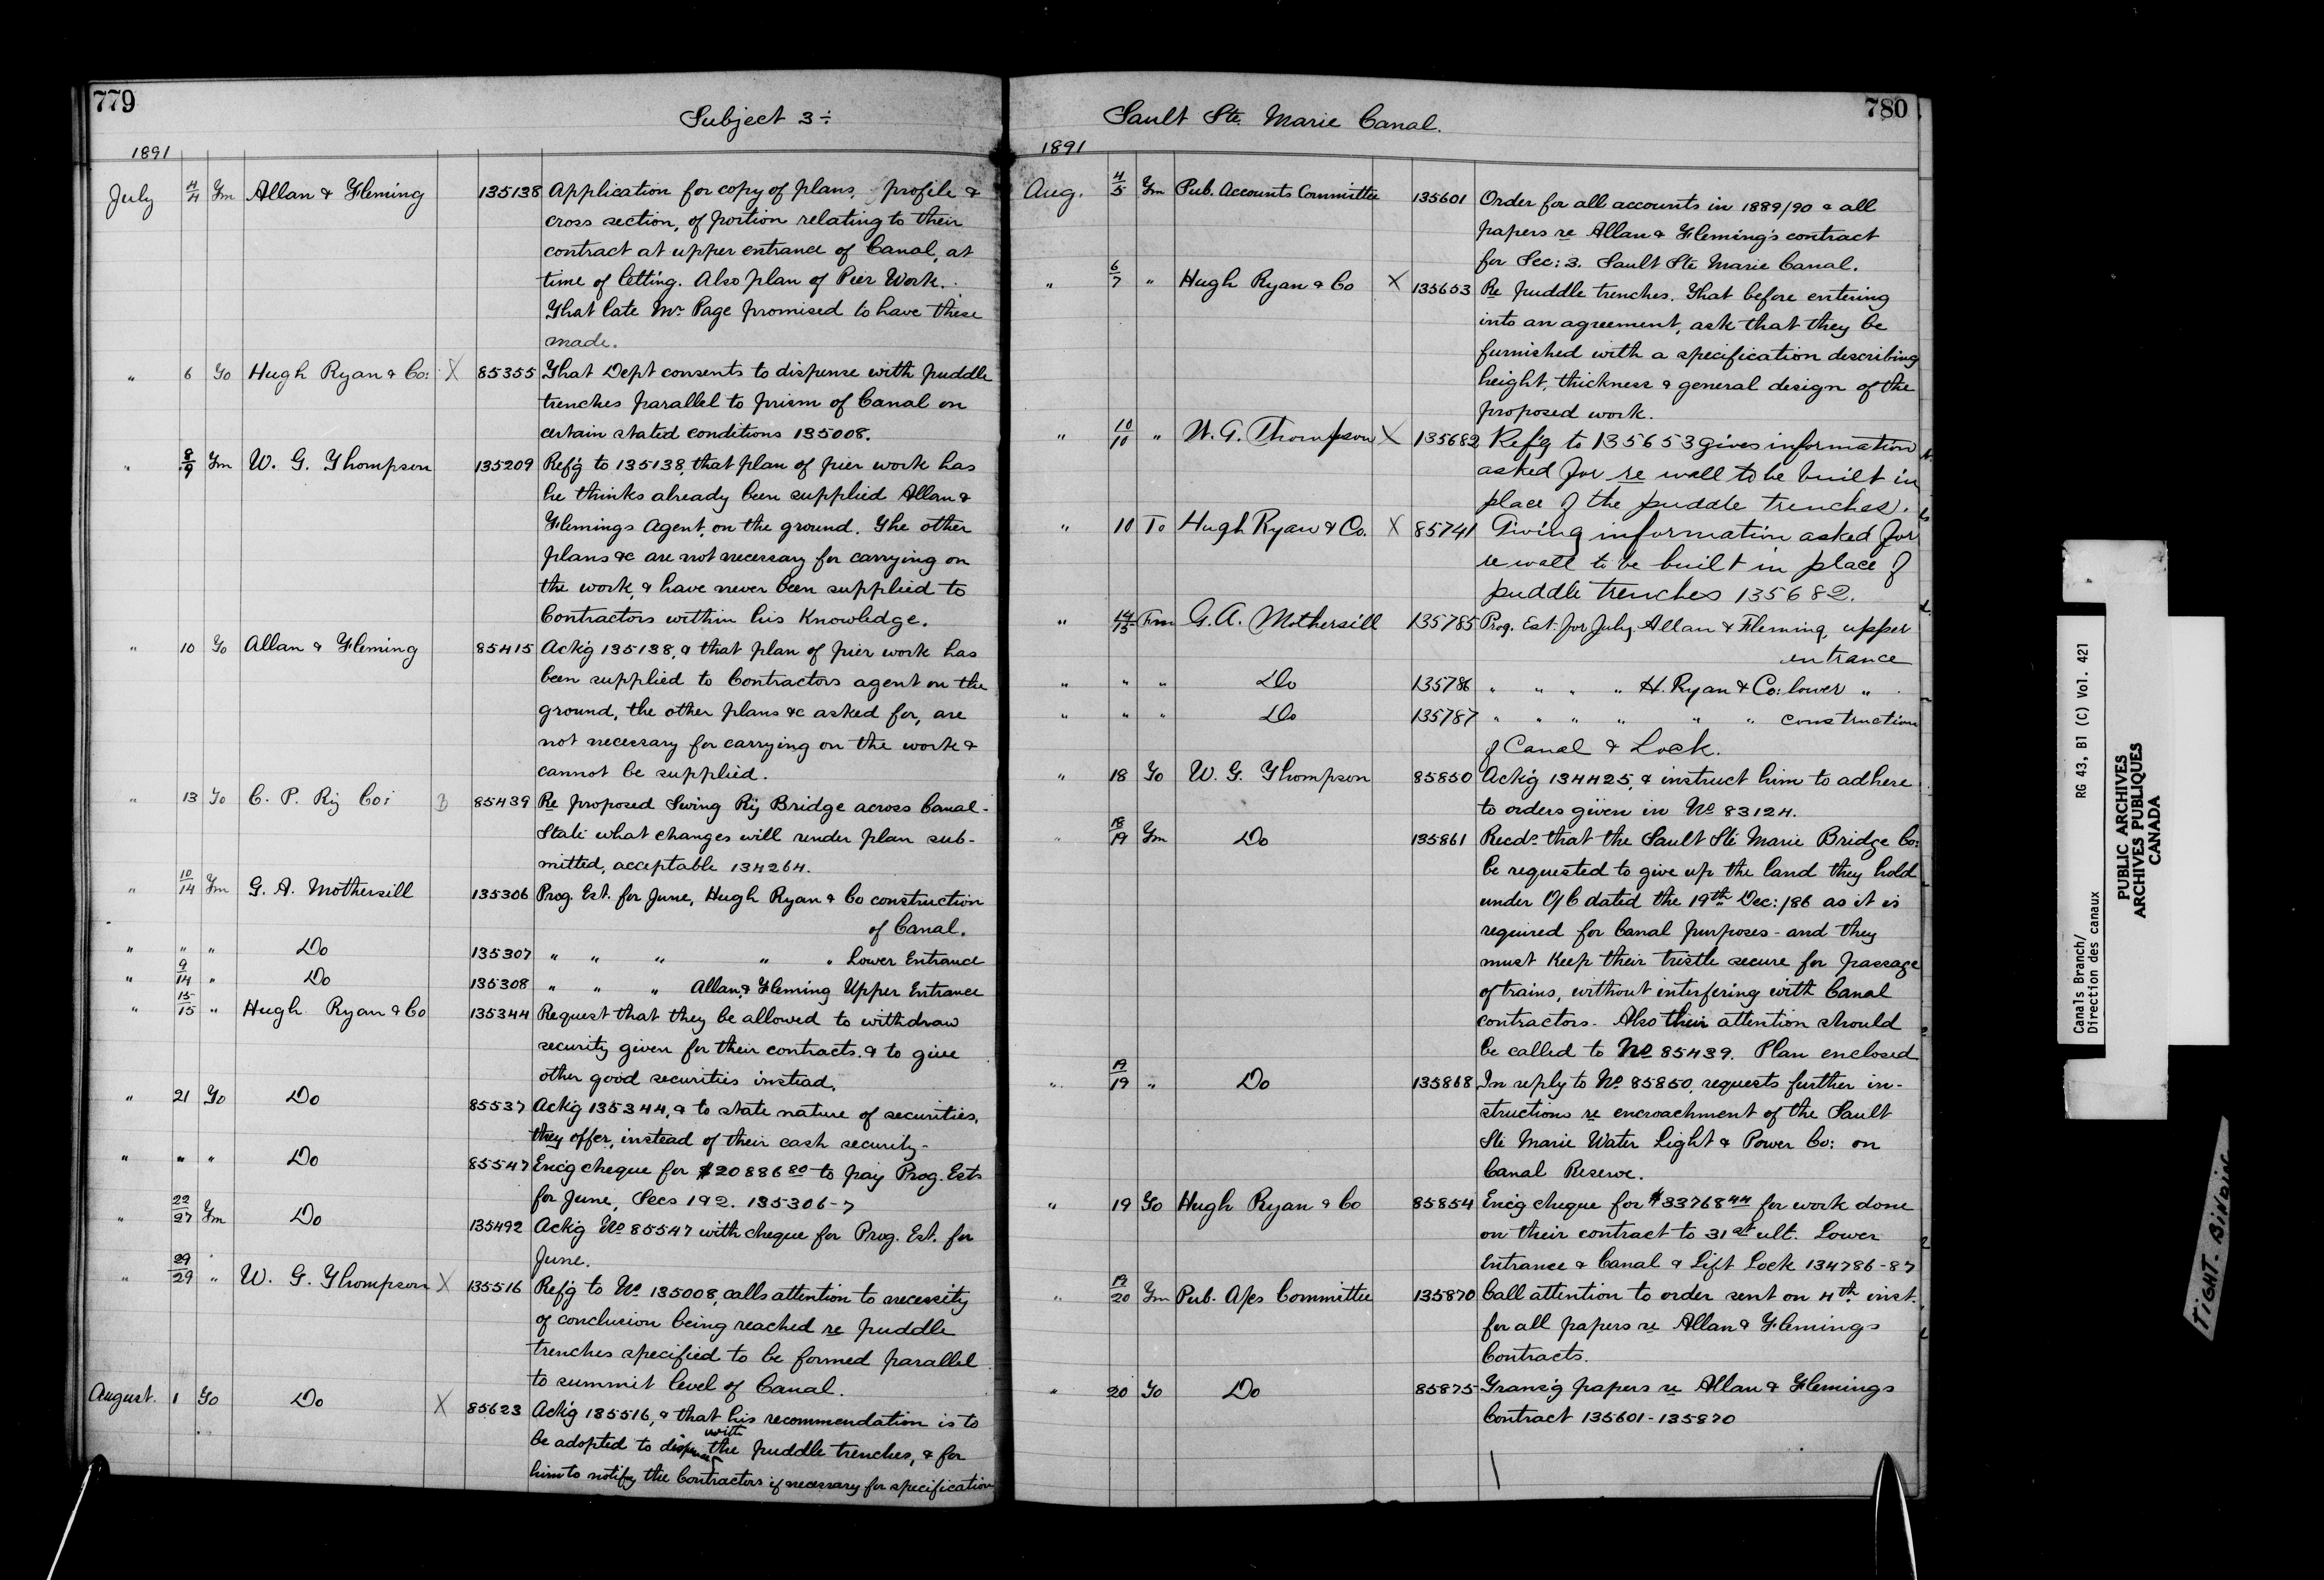 779
Subject 3÷
1891
July 4/4 Fm Allan & Fleming 135138 Application for copy of plans, profile &
cross section, of portion relating to their
contract at upper entrance of Canal, at
time of letting. Also plan of Pier Work.
That late Mr. Page promised to have these
made.
" 6 To Hugh Ryan & Co: X 85355 That Dept consents to dispense with puddle
trenches parallel to prism of Canal on
certain stated conditions 135008.
" 8/9 Fm W. G. Thompson 135209 Refg to 135138, that plan of pier work has
he thinks already been supplied Allan &
Flemings Agent, on the ground. The other
plans &c are not necessary for carrying on
the work, & have never been supplied to
Contractors within his Knowledge.
" 10 To Allan & Fleming 85415 Ackg 135138, & that plan of pier work has
been supplied to Contractors agent on the
ground, the other plans &c asked for, are
not necessary for carrying on the work &
cannot be supplied.
" 13 To C. P. Ry Co: B 85439 Re proposed Swing Ry Bridge across Canal-
State what changes will render plan sub-
mitted, acceptable 134264.
" 10/14 Fm G. A. Mothersill 135306 Prog. Est. for June, Hugh Ryan & Co construction
of Canal.
" " " Do 135307 " " " " " Lower Entrance
" 9/14 " Do 135308 " " " Allan & Fleming Upper Entrance
" 15/15 " Hugh Ryan & Co 135344 Request that they be allowed to withdraw
security given for their contracts. & to give
other good securities instead.
" 21 To Do 85537 Ackg 135344, & to state nature of securities,
they offer, instead of their cash security-
" " " Do 85547 Encg cheque for $20886 80 to pay Prog. Ests
for June, Secs 1 & 2. 135306-7
" 22/27 Fm Do 135492 Ackg No 85547 with cheque for Prog. Est. for
June.
" 29/29 " W. G. Thompson X 135516 Refg to No 135008, calls attention to necessity
of conclusion being reached re puddle
trenches specified to be formed parallel
to summit level of Canal.
August. 1 To Do X 85623 Ackg 135516, & that his recommendation is to
be adopted to dispense with the puddle trenches, & for
him to notify the Contractors if necessary for specification
780
Sault Ste. Marie Canal.
1891
Aug. 4/5 Fm Pub. Accounts Committee 135601 Order for all accounts in 1889/90 & all
papers re Allan & Fleming's contract
for Sec: 3. Sault Ste Marie Canal.
" 6/7 " Hugh Ryan & Co X 135653 Re puddle trenches. That before entering
into an agreement, ask that they be
furnished with a specification describing
height, thickness & general design of the
proposed work.
" 10/10 " W. G. Thompson X 135682 Refg to 135653 gives information
asked for re wall to be built in
place of the puddle trenches.
" 10 To Hugh Ryan & Co. X 85741 Giving information asked for
re wall to be built in place of
puddle trenches 135682.
" 14/15 Frm G. A. Mothersill 135785 Prog. Est. for July. Allan & Fleming, upper
entrance
" " " Do 135786 " " " " H. Ryan & Co: lower "
" " " Do 135787 " " " " " " construction
of Canal & Lock.
" 18 To W. G. Thompson 85850 Ackg 134425, & instruct him to adhere
to orders given in No 83124.
" 18/19 Fm Do 135861 Recds that the Sault Ste Marie Bridge Co:
be requested to give up the land they hold
under O/C dated the 19th Dec: /86 as it is
required for Canal purposes - and they
must Keep their trestle secure for passage
of trains, without interfering with Canal
contractors. Also their attention should
be called to No 85439. Plan enclosed
" 19/19 " Do 135868 In reply to No 85850, requests further in-
structions re encroachment of the Sault
Ste Marie Water Light & Power Co: on
Canal Reserve.
" 19 To Hugh Ryan & Co 85854 Encg cheque for $33768 44 for work done
on their contract to 31st ult. Lower
Entrance & Canal & Lift Lock 134786-87
" 19/20 Fm Pub. A/cs Committee 135870 Call attention to order sent on 4th inst.
for all papers re Allan & Flemings
Contracts.
" 20 To Do 85875 Transg papers re Allan & Flemings
Contract 135601-135870
Canals Branch/
Direction des canaux
RG 43, B1 (C) Vol. 421
PUBLIC ARCHIVES
ARCHIVES PUBLIQUES
CANADA
TIGHT-BINDING